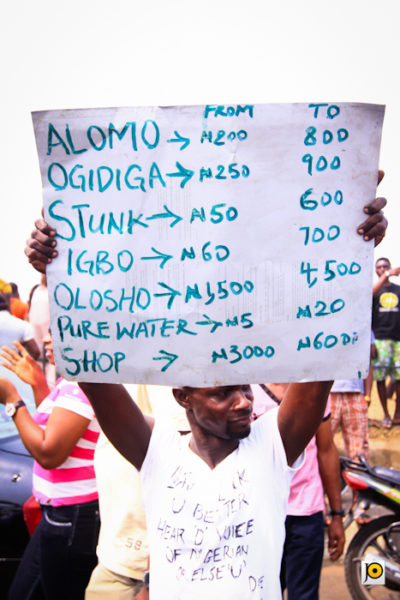 FROM TO
ALOMO → ₦200 800
OGIDIGA → ₦250 900
STUNK → ₦50 600
IGBO → ₦60 700
OLOSHO → ₦1,500 4,500
PURE WATER → ₦5 ₦20
SHOP → ₦3000 ₦6000
U BETTER
HEAR D' VOICE
OF NIGERIAN
OR ELSE "U"
DE
jo